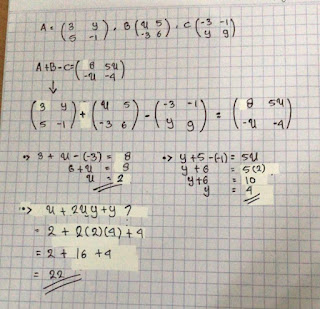 A = (3 y 5 -1), B (u 5 -3 6), C (-3 -1 y 9)
A+B-C = (8 5u -u -4)
(3 y 5 -1) + (u 5 -3 6) - (-3 -1 y 9) = (8 5u -u -4)
=> 3 + u - (-3) = 8
6+u = 8
u = 2
•> y+5-(-1) = 5u
y + 6 = 5(2)
y+6 = 10
y = 4
•> u + 2uy + y ?
= 2 + 2(2)(4) + 4
= 2 + 16 + 4
= 22